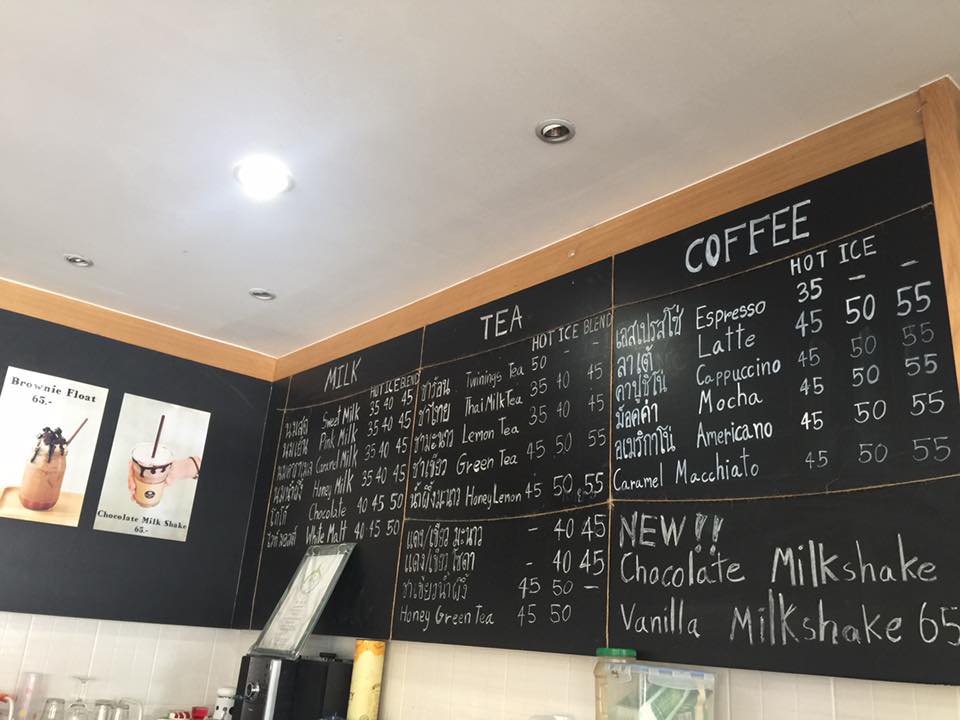 Brownie Float
65.-
Chocolate Milk Shake
65.-
MILK
HOT ICE BLEND
นมสด Sweet Milk 35 40 45
นมเย็น Pink Milk 35 40 45
นมคาราเมล Caramel Milk 35 40 45
นมน้ำผึ้ง Honey Milk 35 40 45
โกโก้ Chocolate 40 45 50
White Malt 40 45 50
TEA
HOT ICE BLEND
ชาร้อน Twinings Tea 50 - -
ชาไทย Thai Milk Tea 35 40 45
ชามะนาว Lemon Tea 35 40 45
ชาเขียว Green Tea 45 50 55
น้ำผึ้งมะนาว Honey Lemon 45 50 55
แดง/เขียว มะนาว - 40 45
แดง/เขียว โซดา - 40 45
ชาเขียวน้ำผึ้ง 45 50 -
Honey Green Tea 45 50
COFFEE
HOT ICE
เอสเปรสโซ่ Espresso 35 - -
ลาเต้ Latte 45 50 55
คาปูชิโน่ Cappuccino 45 50 55
ม็อคค่า Mocha 45 50 55
อเมริกาโน่ Americano 45 50 55
Caramel Macchiato 45 50 55
NEW!!
Chocolate Milkshake
Vanilla Milkshake 65